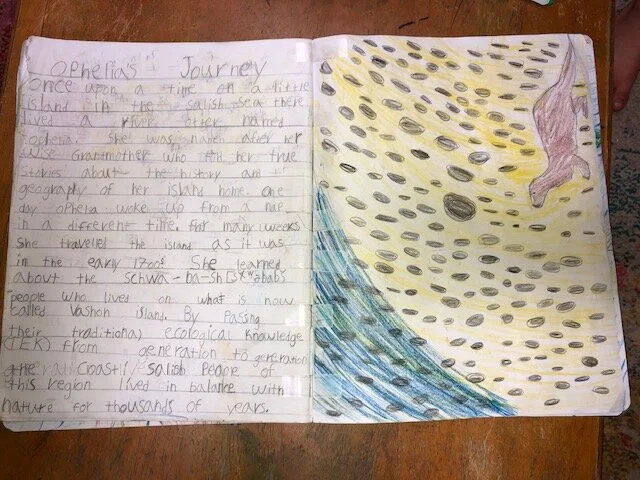 Ophelia's Journey
Once upon a time on a little
island in the salish sea there
lived a river otter named
ophelia. She was named after her
wise Grandmother who told her true
stories about the history and
geography of her island home. one
day ophelia woke up from a nap
in a different time. For many weeks
she traveled the island as it was
in the early 1700s. She learned
about the schwa-ba-sh
people who lived on what is now
called Vashon island. By Passing
their traditional ecological knowledge
(TEK) from generation to generation
the Coast Salish People of
this region lived in balance with
nature for thousands of years.